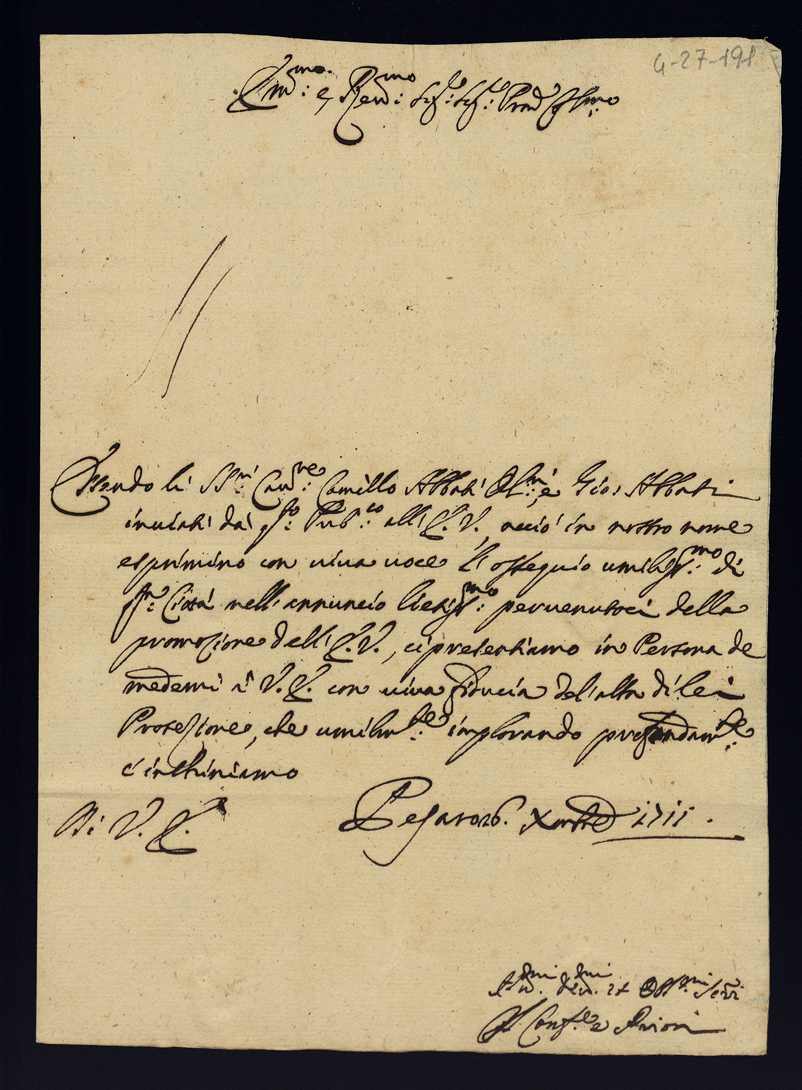 4-27-191
Em:mo e Reu:mo Sig.r Sig.r Pron Col:mo
Essendo li SS:ri Cau:re Camillo Abbati Oli:ri e Gio: Abbati
inuiati da Pub:co all'E.V., acciò in nostro nome
esprimino con uiua uoce l'ossequio umiliss:mo di
Città nell'annuncio lietiss:mo peruenutoci della
promozione dell'E.V., ci presentiamo in Persona de
medemi a V.E. con uiua fiducia dell'alta di lei
Protezione, che umilm:te implorando profondam:te
c'inchiniamo
Di V. E.
Pesaro 26. Xmbre 1711.
Um:mi deu:mi et Obb:mi Ser:ri
Il Conf:re e Priori